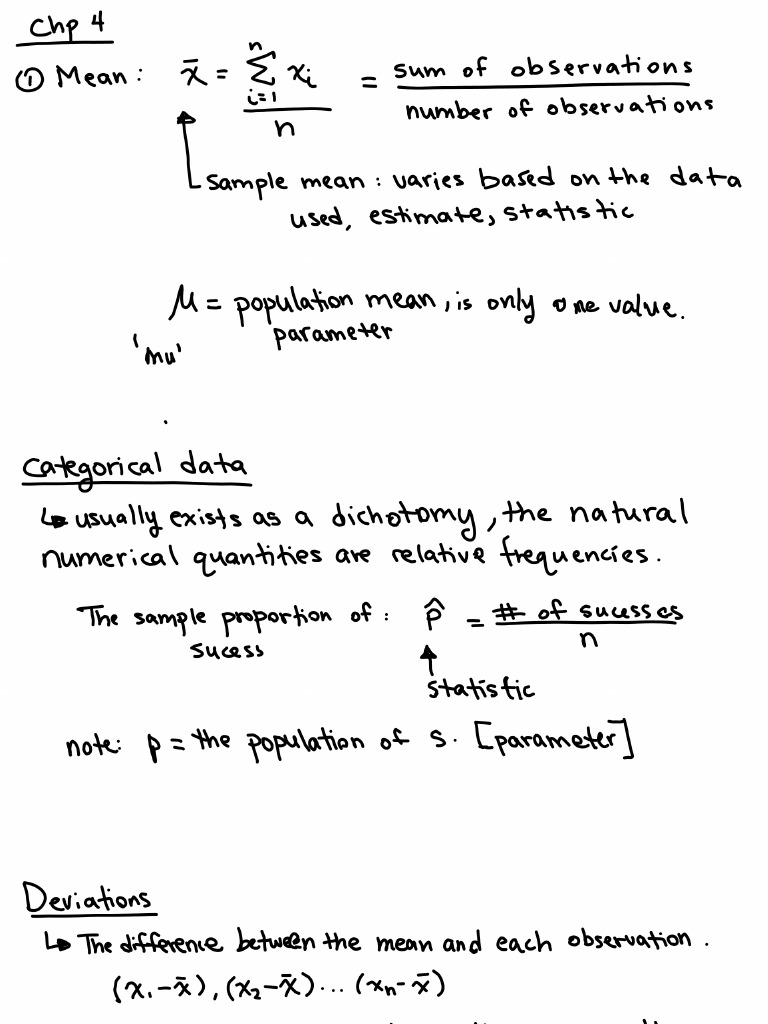 Chp 4
① Mean: x̄ = ∑ᵢ₌₁ⁿ xᵢ / n = sum of observations / number of observations
Sample mean: varies based on the data
used, estimate, statistic
μ = population mean, is only one value.
parameter
'mu'
Categorical data
↳ usually exists as a dichotomy, the natural
numerical quantities are relative frequencies.
The sample proportion of : p̂ = # of sucesses / n
sucess
statistic
note: p = the population of s. [parameter]
Deviations
↳ The difference between the mean and each observation.
(x₁-x̄), (x₂-x̄)... (xₙ-x̄)